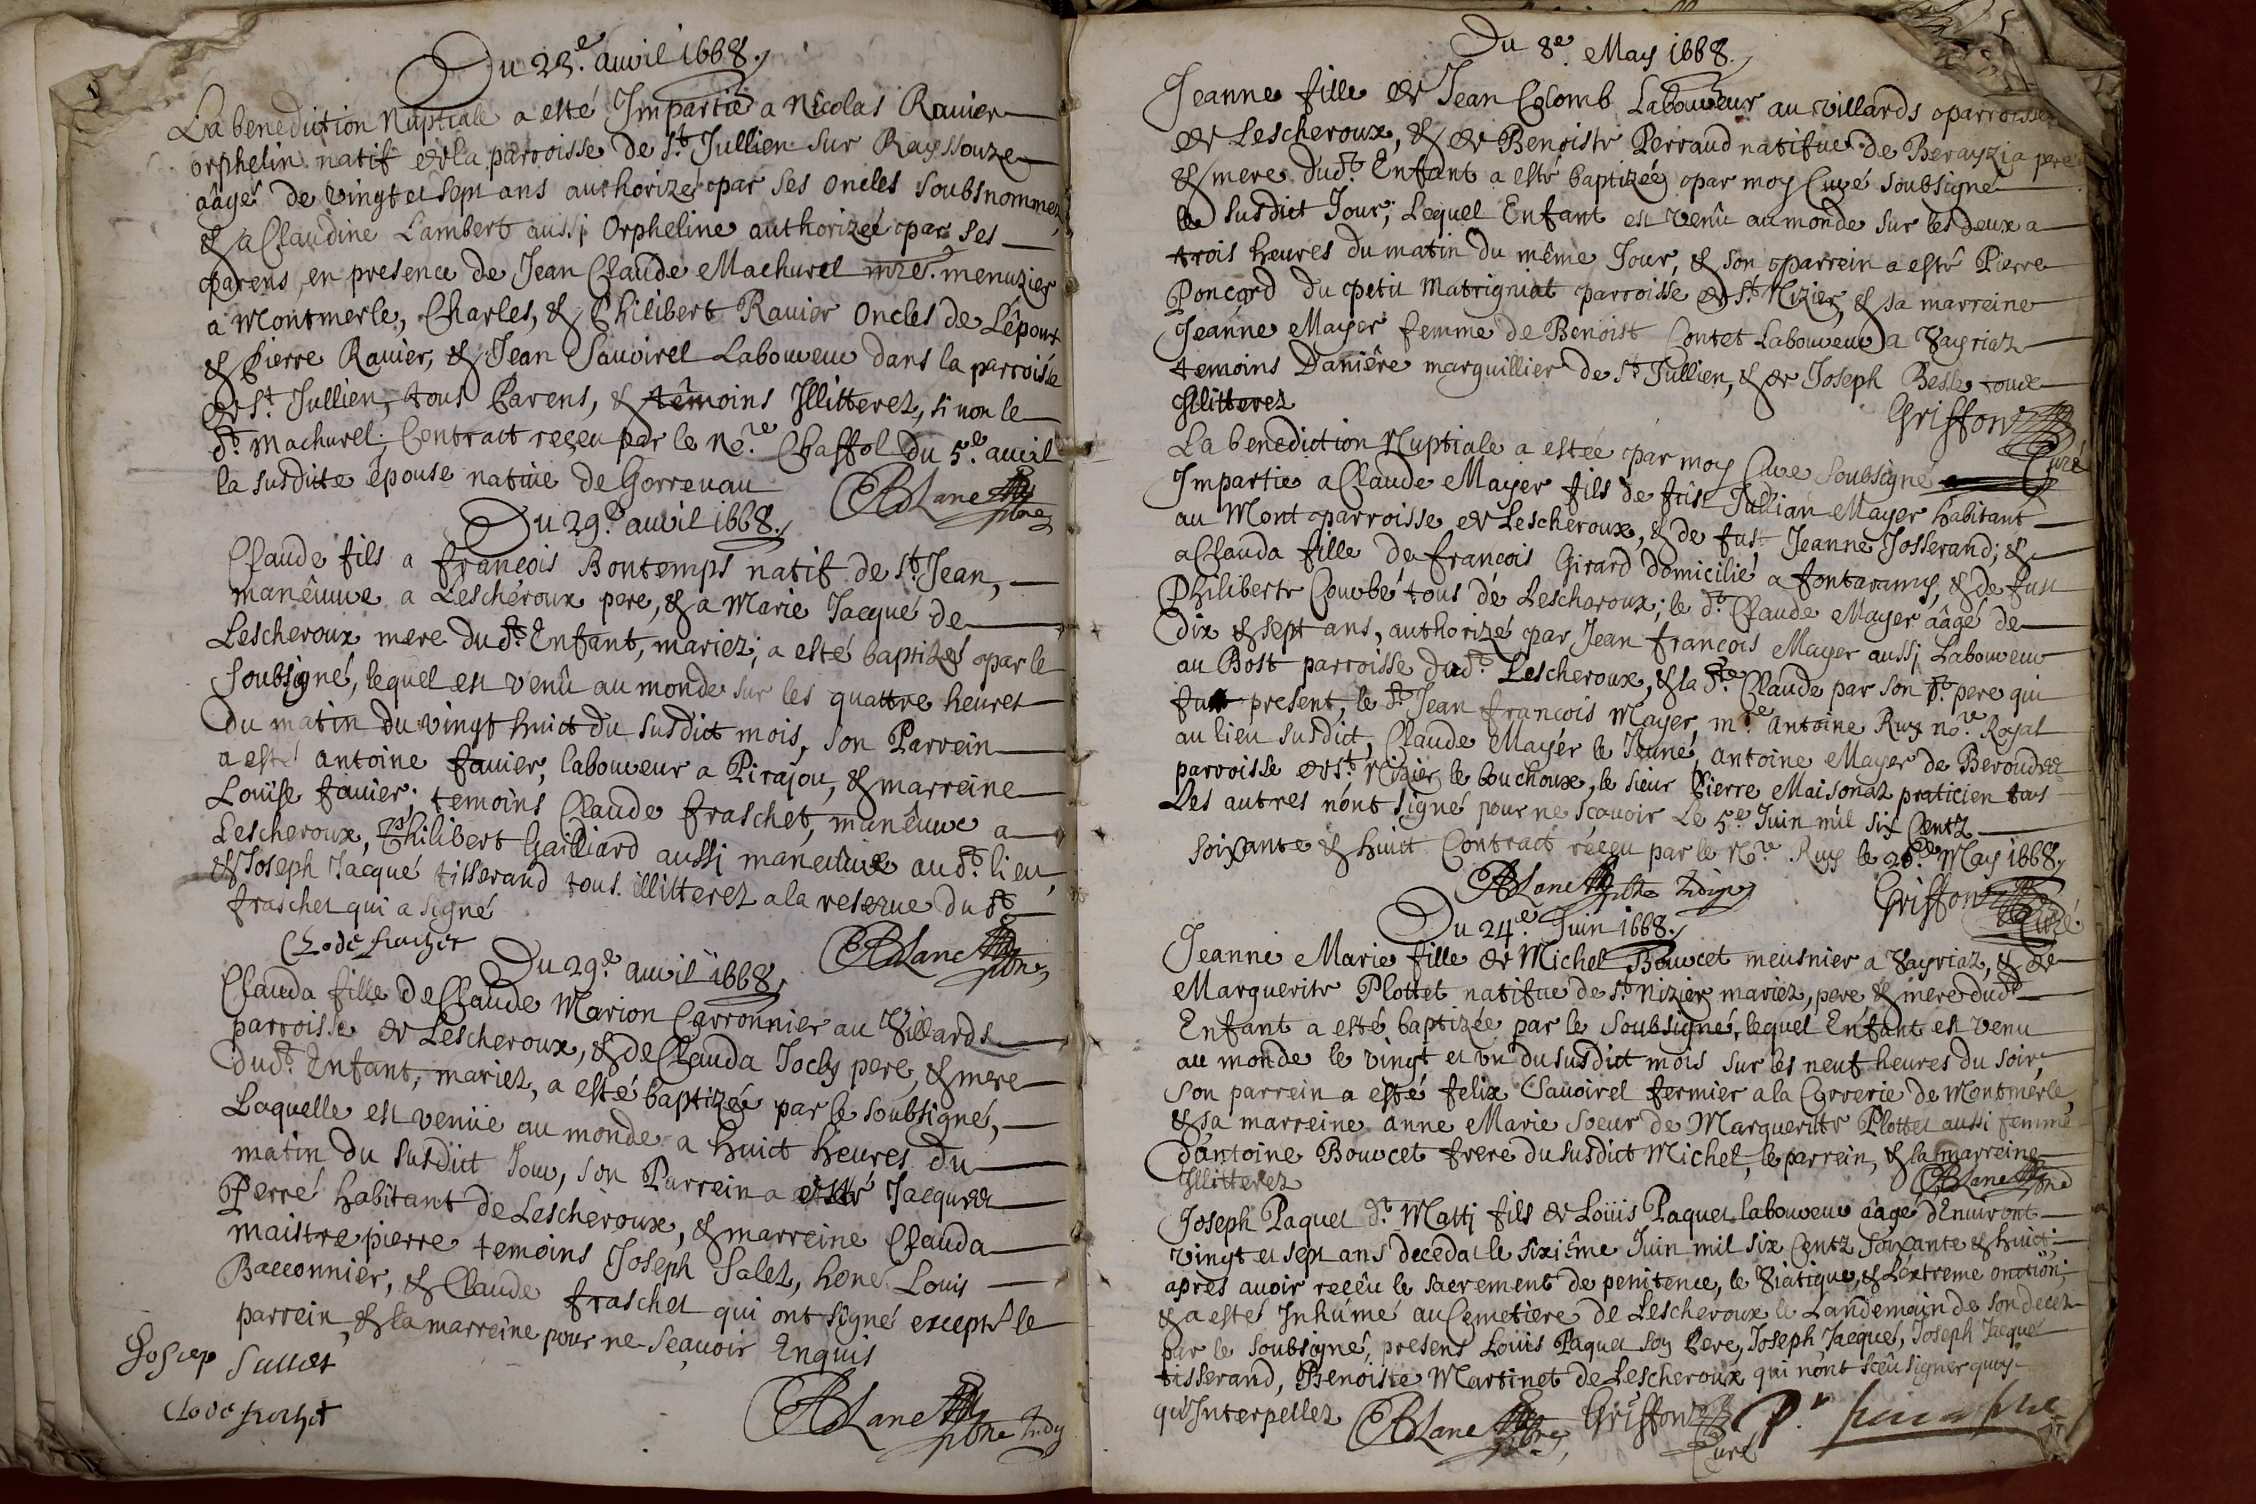 Du 23.e auril 1668.
La benediction Nuptiale a esté Impartie a Nicolas Rauier
orphelin natif de la parroisse de St Jullien sur Rayssouze
aâgé de vingt et sept ans authorizé par ses oncles soubsnommez
& a Claudine Lambert aussi Orpheline authorizée par ses
parens, en presence de Jean Claude Machurel mre. menuzier
a Montmerle, Charles, & Philibert Rauier Oncles de L'époux
& Pierre Rauier, & Jean Sauoirel Laboureur dans la parroisse
de St Jullien, tous Parens, & têmoins Illitterez, si non le
dt Machurel; Contract reçeu par le No.re Chaffol du 5.e auril
la susditte épouse natiue de Gorreuau
Du 29.e auril 1668.
Claude fils a françois Bontemps natif de St Jean,
manêuure a Leschéroux pere, & a Marie Jacqué de
Lescheroux mere dudt Enfant, mariez; a esté baptizé par le
soubsigné, lequel est venû au monde sur les quattre heures
du matin du vingt huict du susdict mois, son Parrein
a esté antoine fauier, laboureur a Pirajou, & marreine
Loüise fauier; temoins Claude fraschet, manêuure a
Lescheroux, Philibert Gailliard aussi maneuure au dt lieu,
& Joseph Jacqué tisserand tous illitterez a la reserue du dt
fraschet qui a signé
Clode frachet
Du 29.e auril 1668.
Clauda fille de Claude Marion Carronnier au Villards
parroisse de Lescheroux, & de Clauda Jocly pere, & mere
dudt Enfant, mariez, a esté baptizée par le soubsigné,
Laquelle est venüe au monde a huict heures du
matin du susdict Jour, son Parrein a esté Jacquez
Perré habitant de Lescheroux, & marreine Clauda
maistre pierre temoins Joseph Salez, honé. Louis
Bacconnier, & Claude fraschet qui ont signé excepté le
parrein, & la marreine pour ne sçauoir Enquis
Josep Sallet
Clode frachet
Du 8e. May 1668.
Jeanne fille de Jean Colomb Laboureur au villards parroisse
de Lescheroux, & de Benoiste Perraud natifue de Berayzia pere
& mere dudt Enfant a esté baptizée par moy Curé soubsigné
le susdict Jour; Lequel Enfant est venû au monde sur les deux a
trois heures du matin du même Jour, & son parrein a esté Pierre
Ponçard du petit Matrigniat parroisse de St Nizier, & sa marreine
Jeanne Mayer femme de Benoist Contet Laboureur a Vayriaz
temoins Daniêre marguillier de St Jullien, & de Joseph Besle tous
Illitterez
Griffon Curé
La benediction Nuptiale a estée par moy Cure soubsigné
Impartie a Claude Mayer fils de fust Jullian Mayer habitant
au Mont parroisse de Lescheroux, & de fust Jeanne Josserand; &
a Clauda fille de françois Girard domicilié a fontaramy, & de fust
Philiberte Courbé tous de Lescheroux; le dt Claude Mayer aâgé de
Dix & sept ans, authorizé par Jean françois Mayer aussi Laboureur
au Bost parroisse dudt Lescheroux, & la dte Claude par son dt pere qui
fust present, le dt Jean françois Mayer, mre antoine Ruy no.re Royal
au lieu susdict, Claude Mayer le Jeune, antoine Mayer de Beroudiez
parroisse de St Nizier le bouchoux, le sieur Pierre Maisonaz praticien tous
Les autres n'ont signé pour ne scauoir Le 5e Juin mil six Centz
soixante & huict Contract réçeu par le Nre Ruy le 20.e May 1668.
Griffon Curé
Du 24.e Juin 1668.
Jeanne Marie fille de Michel Bouucet meusnier a Vayriaz, & de
Marguerite Plottet natifue de St Nizier mariez, pere & mere dudt
Enfant a esté baptizée par le soubsigné, lequel Enfant est venu
au monde le vingt et vn du susdict mois sur les neuf heures du soir,
son parrein a esté felix Sauoirel fermier a la Corverie de Montmerle,
& sa marreine anne Marie soeur de Marguerite Plottet aussi femme
d'antoine Bouucet frere du susdict Michel, le parrein, & la marreine
Illitterez
Joseph Paquet dt Matti fils de Loüis Paquet laboureur aâgé d'Enuiront
vingt et sept ans deceda le sixiême Juin mil six Centz soixante & huict
apres auoir reçêu le sacrement de penitence, le Viatique, & L'extreme onction;
& a esté Inhúmé au Cemetiere de Lescheroux le Landemain de son decez
par le soubsigné, presens Loüis Paquet son Pere, Joseph Jacqué, Joseph Jacqué
tisserand, Benoiste Martinet de Lescheroux qui n'ont sçeû signer quoy
qu'Interpellez
Griffon Curé